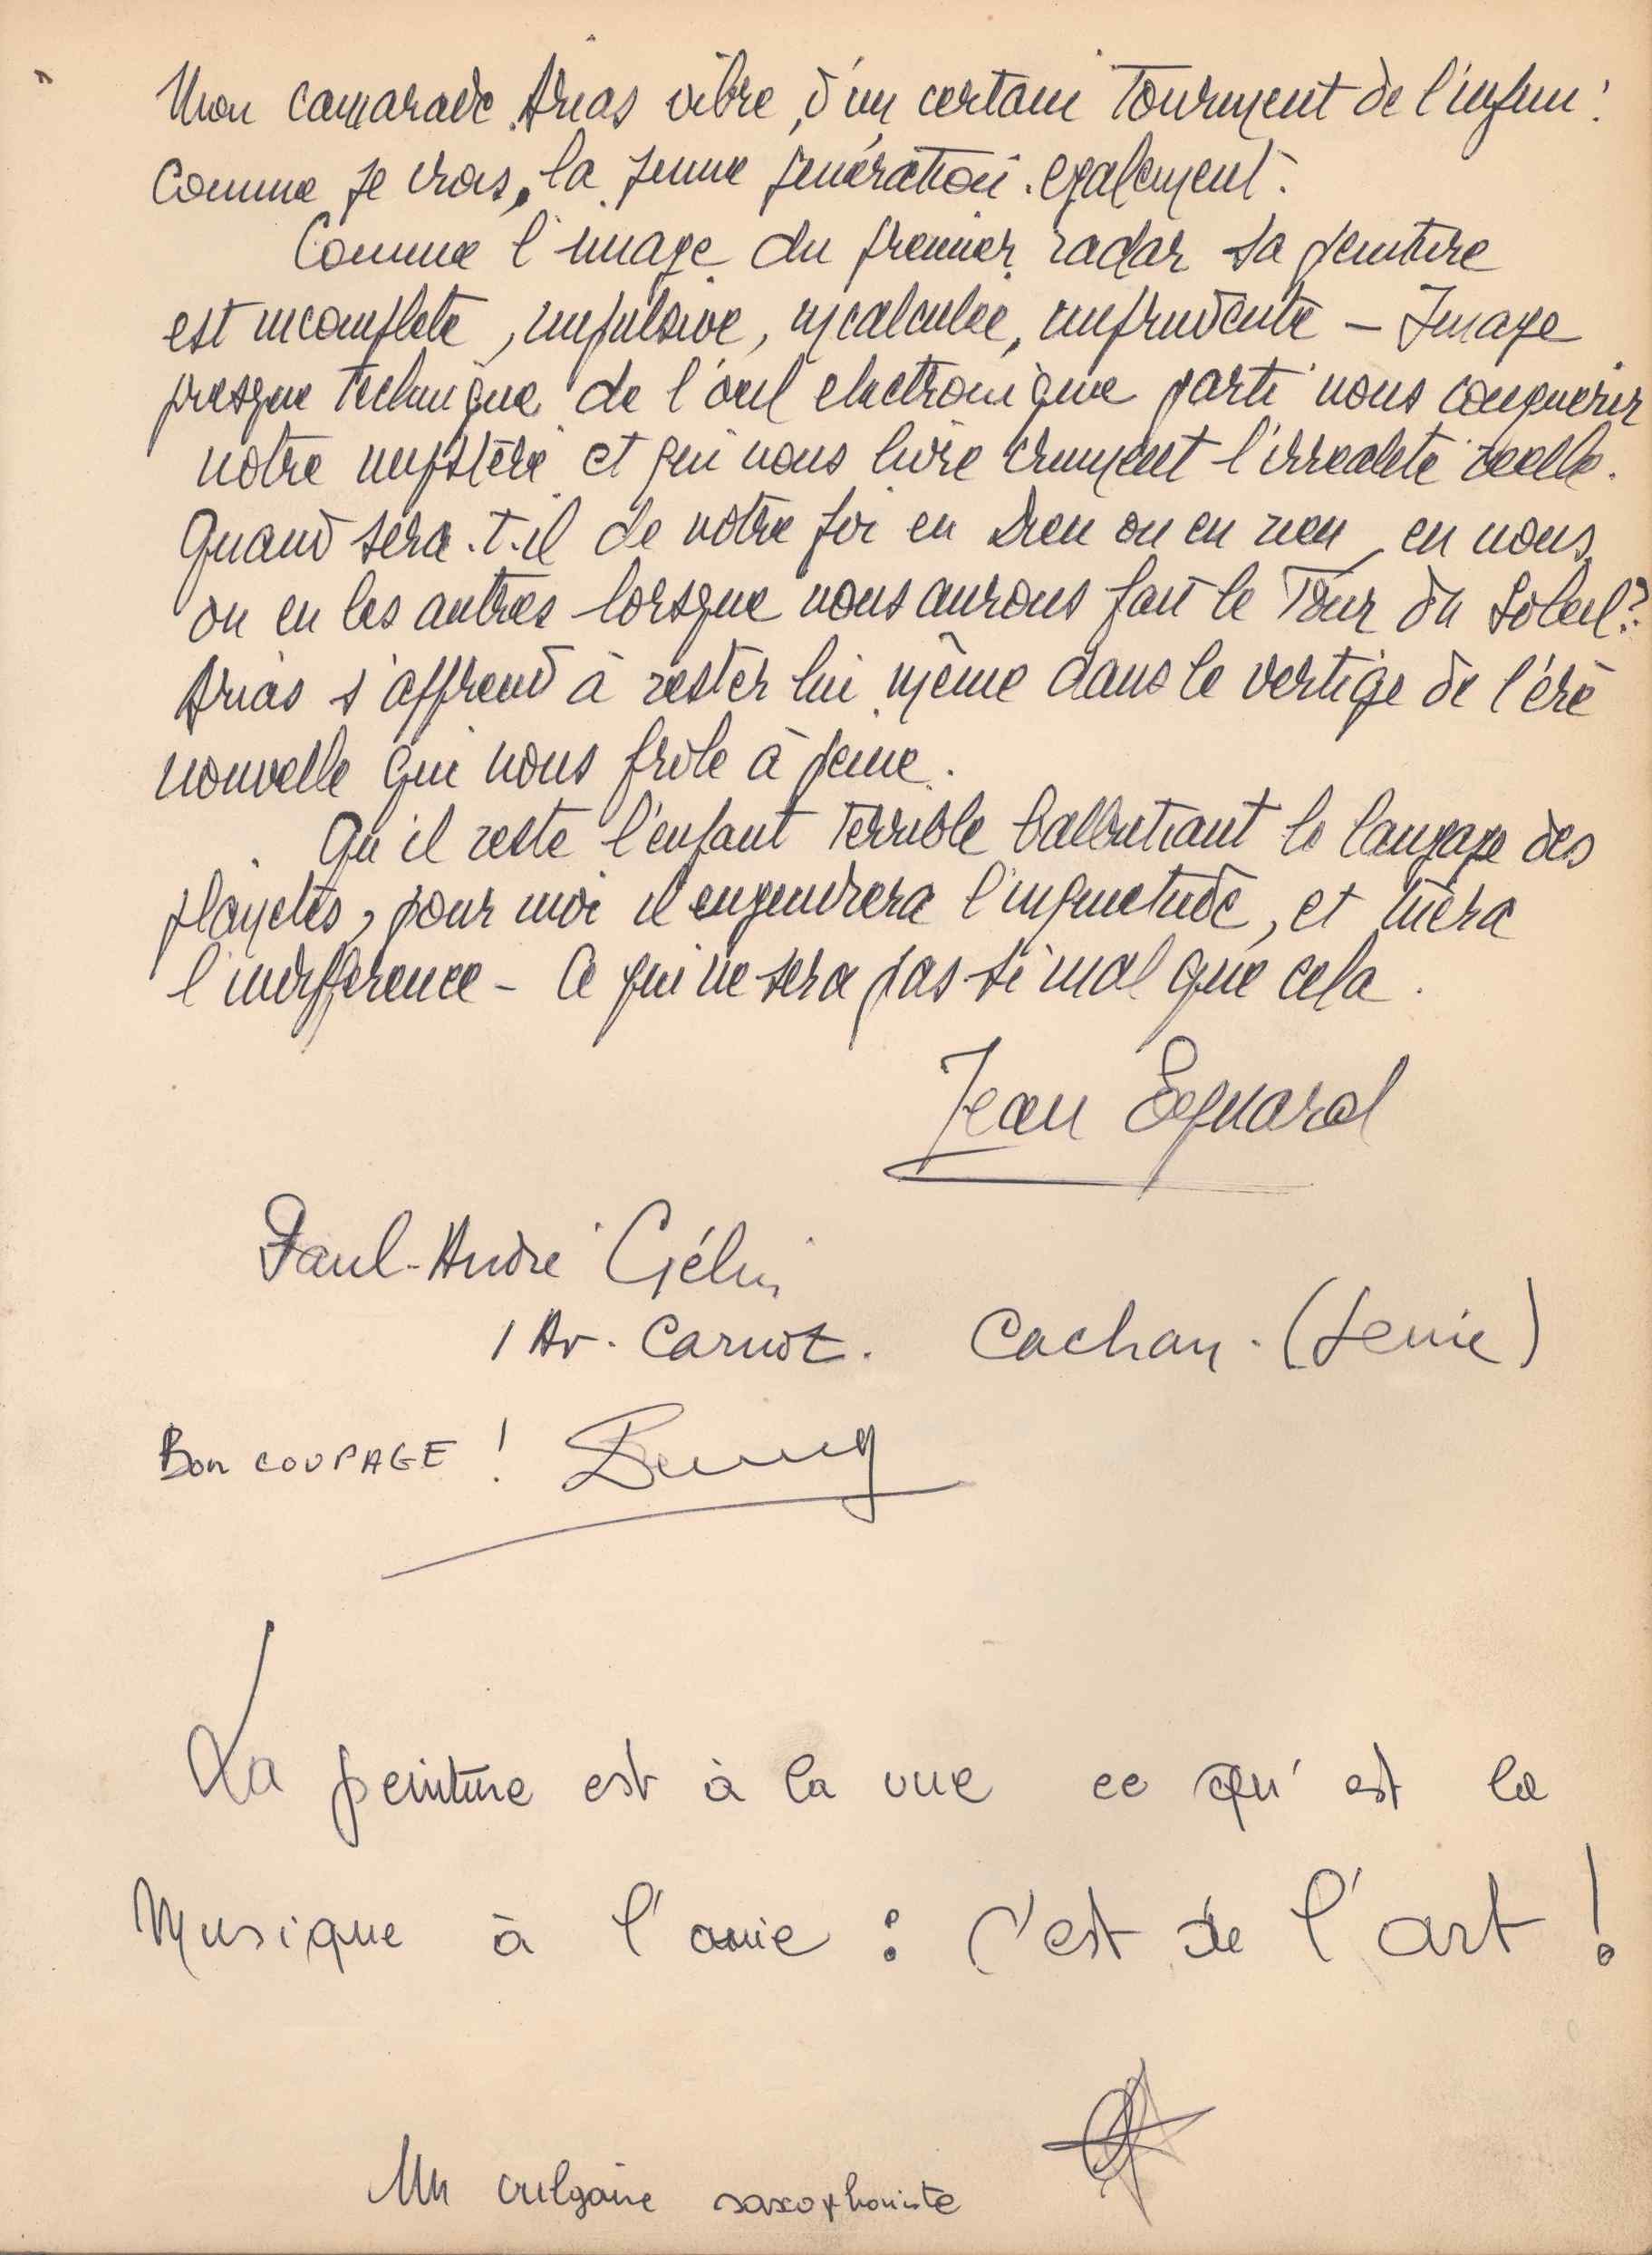 Mon camarade Arias vibre, d'un certain Tourment de l'infini!
Comme je crois, la jeune génération également.
Comme l'image du premier radar sa peinture
est incomplète, impulsive, incalculée, imprudente – Image
presque technique de l'oeil electronique parti nous conquerir
notre mystère et qui nous livre crument l'irrealité réelle.
Quand sera-t-il de notre foi en Dieu ou en rien, en nous
ou en les autres lorsque nous aurons fait le Tour du Soleil?
Arias s'apprend à rester lui même dans le vertige de l'ère
nouvelle qui nous frôle à peine.
Qu'il reste l'enfant Terrible balbutiant le langage des
planetes, pour moi il engendrera l'inquietude, et tuera
l'indifference – Ce qui ne sera pas si mal que cela.
Jean
Paul-André Gélin
1 Av. Carnot. Cachan. (Seine)
Bon COUPAGE!
La peinture est à la vue ce qu'est la
Musique à l'ouie : c'est de l'art!
Un vulgaire saxophoniste